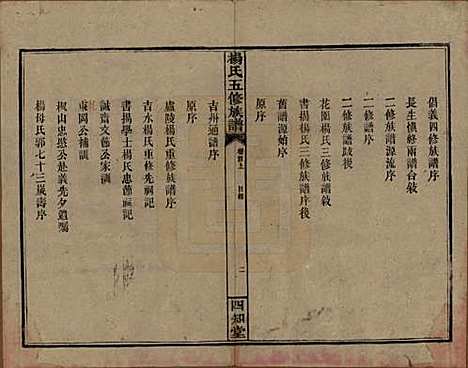 倡義四修族譜序
長生愼終兩譜合敍
二修族譜源流序
二修譜序
二修族譜後
花園楊氏三修族譜敍
書揚楊氏三修族譜序後
舊譜源始序
原序
楊氏五修族譜
卷首上
目錄
二
四知堂
吉州通譜序
原序
廬陵楊氏重修族譜序
吉水楊氏重修先祠記
書揚學士楊氏忠節祠記
誠齋文節公家訓
東園公補訓
椒山忠愍公赴義先夕遺囑
楊母氏郭七十三歲壽序